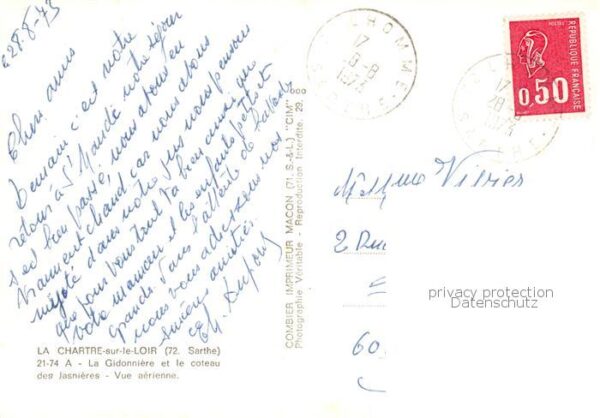 28-8-73
Chers amis
Demain c'est notre
retour à St Mandé notre séjour
s'est bien passé, nous avons eu
vraiment chaud, car nous avons
mijoté dans notre jus nous pensons
que pour vous tout va bien ainsi que
votre maman et les enfants petits et
grands. Dans l'attente de
nous vous adressons nos
amitiés.
Ch. Dupont
LA CHARTRE-sur-le-LOIR (72. Sarthe)
21-74 A - La Gidonnière et le coteau
des Jasnières - Vue aérienne.
COMBIER IMPRIMEUR MACON (71. S.-&-L.) "CIM"
Photographie Véritable - Reproduction Interdite. 29.
LHOMME
17
8-8
1973
SARTHE
POSTES
RÉPUBLIQUE FRANÇAISE
0,50
17
28-8
1973
SARTHE
2 Rue
60
privacy protection
Datenschutz